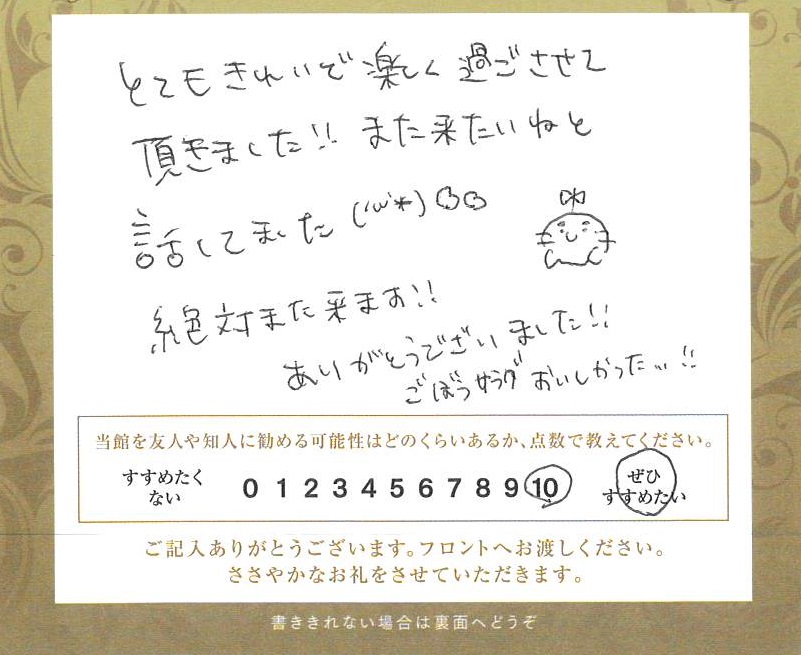 とてもきれいで楽しく過ごさせて
頂きました!! また来たいねと
話してました ('ω'*)
絶対また来ます!!
ありがとうございました!!
ごぼうサラダ おいしかった...!!
当館を友人や知人に勧める可能性はどのくらいあるか、点数で教えてください。
すすめたくない 0 1 2 3 4 5 6 7 8 9 10 ぜひすすめたい
ご記入ありがとうございます。フロントへお渡しください。
ささやかなお礼をさせていただきます。
書ききれない場合は裏面へどうぞ